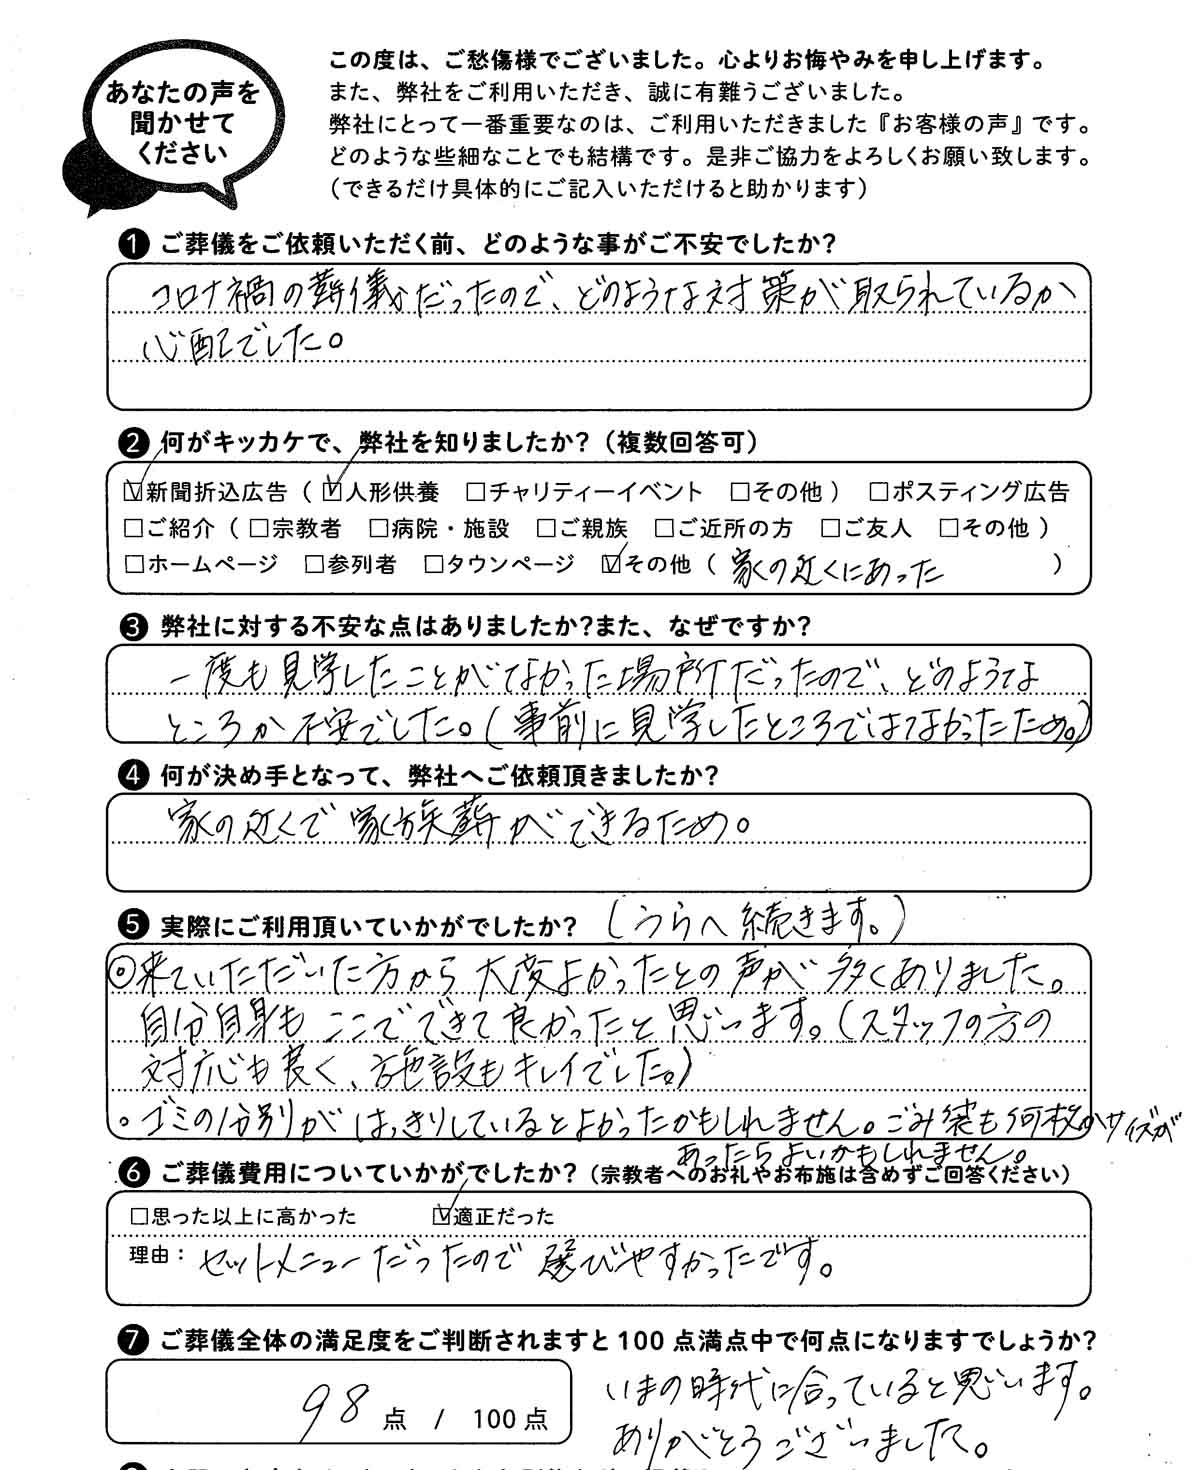 あなたの声を
聞かせて
ください
この度は、ご愁傷様でございました。心よりお悔やみを申し上げます。
また、弊社をご利用いただき、誠に有難うございました。
弊社にとって一番重要なのは、ご利用いただきました『お客様の声』です。
どのような些細なことでも結構です。是非ご協力をよろしくお願い致します。
（できるだけ具体的にご記入いただけると助かります）
❶ ご葬儀をご依頼いただく前、どのような事がご不安でしたか？
コロナ禍の葬儀だったので、どのような対策が取られているか
心配でした。
❷ 何がキッカケで、弊社を知りましたか？（複数回答可）
☑新聞折込広告（ ☑人形供養 □チャリティーイベント □その他 ） □ポスティング広告
□ご紹介（ □宗教者 □病院・施設 □ご親族 □ご近所の方 □ご友人 □その他 ）
□ホームページ □参列者 □タウンページ ☑その他（ 家の近くにあった ）
❸ 弊社に対する不安な点はありましたか？また、なぜですか？
一度も見学したことがなかった場所だったので、どのような
ところか不安でした。（事前に見学したところではなかったため。）
❹ 何が決め手となって、弊社へご依頼頂きましたか？
家の近くで家族葬ができるため。
❺ 実際にご利用頂いていかがでしたか？ （うらへ続きます。）
◎来ていただいた方から大変よかったとの声が多くありました。
自分自身もここでできて良かったと思います。（スタッフの方の
対応も良く、施設もキレイでした。）
。ゴミの分別がはっきりしているとよかったかもしれません。ごみ袋も何枚かサイズが
あったらよいかもしれません。
❻ ご葬儀費用についていかがでしたか？（宗教者へのお礼やお布施は含めずご回答ください）
□思った以上に高かった ☑適正だった
理由： セットメニューだったので選びやすかったです。
❼ ご葬儀全体の満足度をご判断されますと100点満点中で何点になりますでしょうか？
98 点 / 100点
いまの時代に合っていると思います。
ありがとうございました。